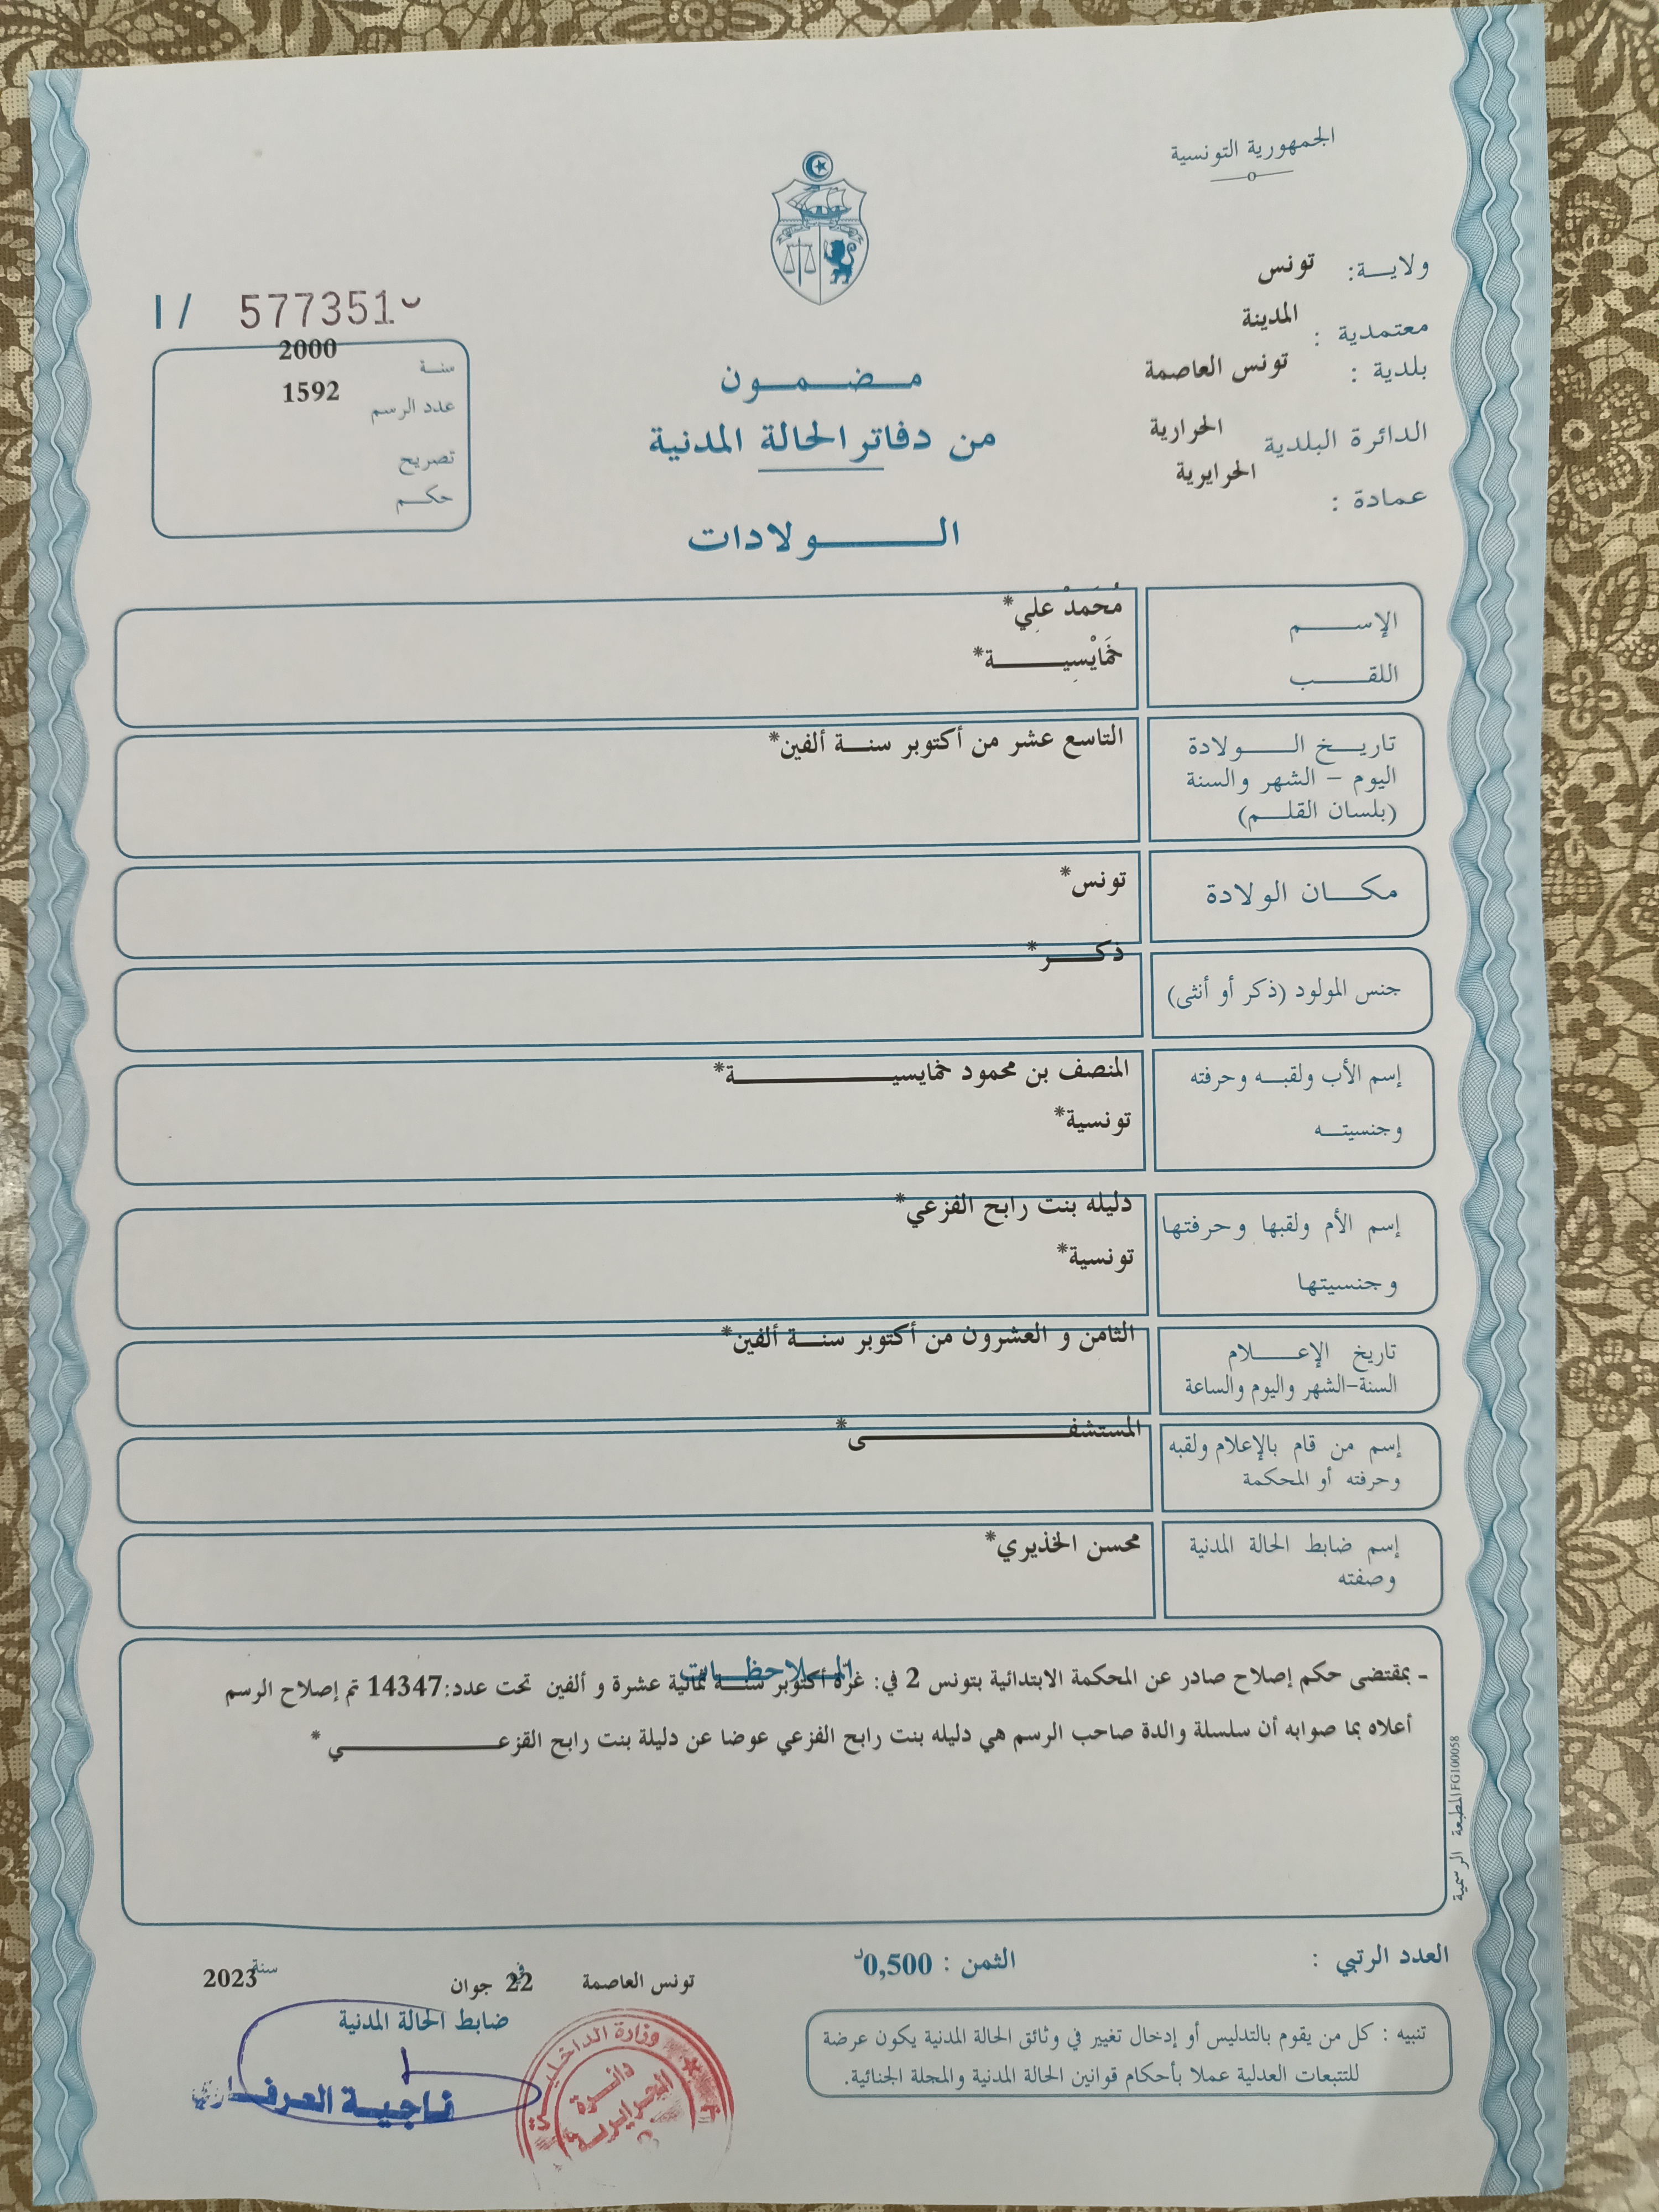 الجمهورية التونسية
ولايـــة: تونس
معتمدية : المدينة
بلدية : تونس العاصمة
الدائرة البلدية الحرارية
عمادة : الحرايرية
I / 577351
سنـة 2000
عدد الرسم 1592
تصريح
حكـــم
مـــضـــمـــون
من دفاتر الحالة المدنية
الـــــولادات
الإســـــم مُحَمدْ علِي*
اللقـــــب خمَايْسِيـــــة*
تاريـــخ الـــــولادة التاسع عشر من أكتوبر سنـــة ألفين*
اليوم – الشهر والسنة
(بلسان القلـــم)
مكـــان الولادة تونس*
جنس المولود (ذكر أو أنثى) ذكـــر*
إسم الأب ولقبـــه وحرفته المنصف بن محمود خمايسيـــــة*
وجنسيتـــه تونسية*
إسم الأم ولقبها وحرفتها دليله بنت رابح الفزعي*
وجنسيتها تونسية*
تاريخ الإعـــــلام الثامن و العشرون من أكتوبر سنـــة ألفين*
السنة-الشهر واليوم والساعة
إسم من قام بالإعلام ولقبه المستشفـــــى*
وحرفته أو المحكمة
إسم ضابط الحالة المدنية محسن الخذيري*
وصفته
المـــلاحظـــات
- بمقتضى حكم إصلاح صادر عن المحكمة الابتدائية بتونس 2 في: غرة أكتوبر سنـــة ثمانية عشرة و ألفين تحت عدد:14347 تم إصلاح الرسم
أعلاه بما صوابه أن سلسلة والدة صاحب الرسم هي دليله بنت رابح الفزعي عوضا عن دليلة بنت رابح القزعـــــي *
المطبعة الرسمية FG100058
العدد الرتبي :
الثمن : 0,500د
تونس العاصمة في 22 جوان سنة 2023
ضابط الحالة المدنية
ناجيـــة العرفـــاوي
وزارة الداخليـــة
دائـــرة
الحرايريـــة
تنبيه : كل من يقوم بالتدليس أو إدخال تغيير في وثائق الحالة المدنية يكون عرضة
للتتبعات العدلية عملا بأحكام قوانين الحالة المدنية والمجلة الجنائية.